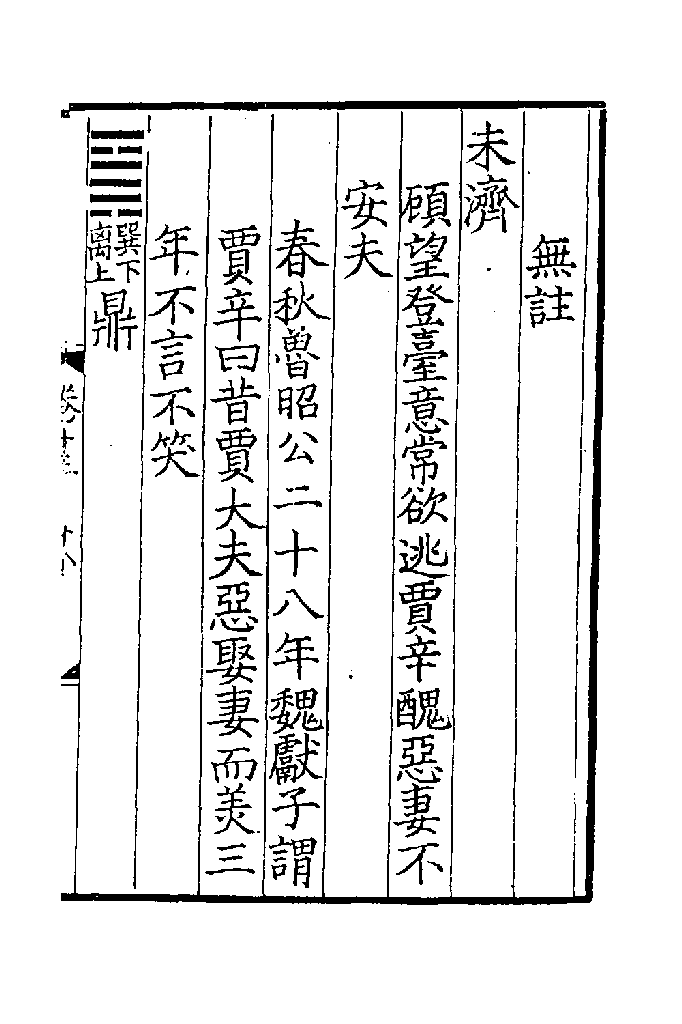 無註
未濟
顧望登臺意常欲逃賈辛醜惡妻不
安夫
春秋魯昭公二十八年魏獻子謂
賈辛曰昔賈大夫惡娶妻而美三
年不言不笑
䷱巽下離上鼎